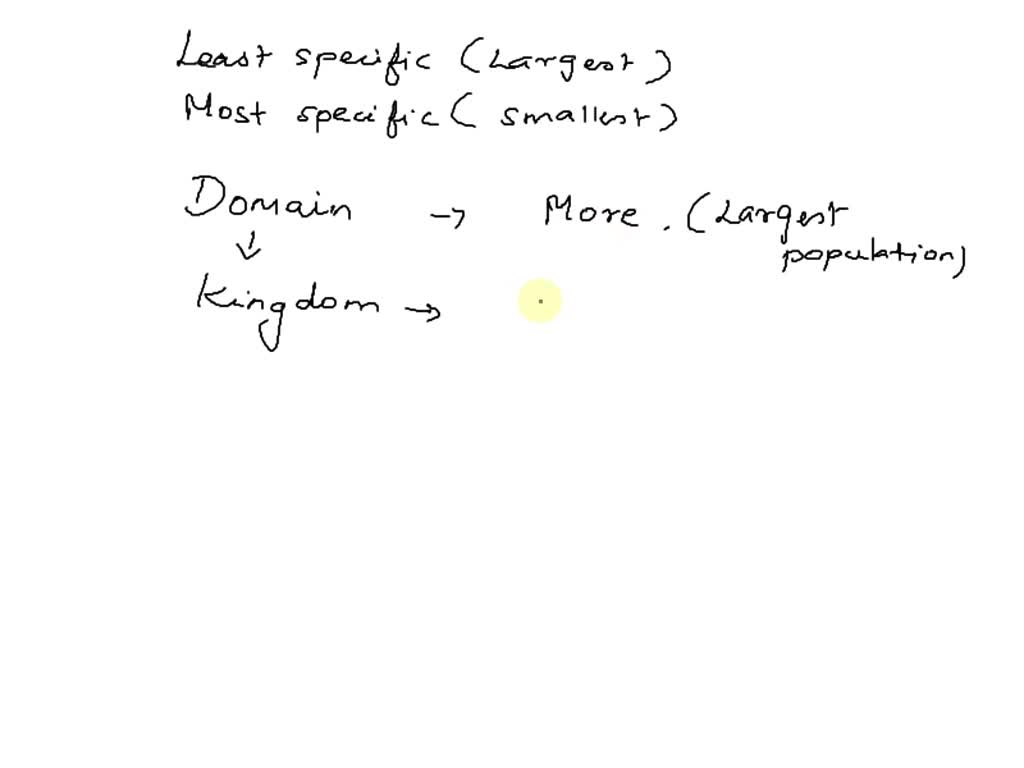 Least specific (Largest)
Most specific (smallest)
Domain → More. (Largest population)
↓
Kingdom →